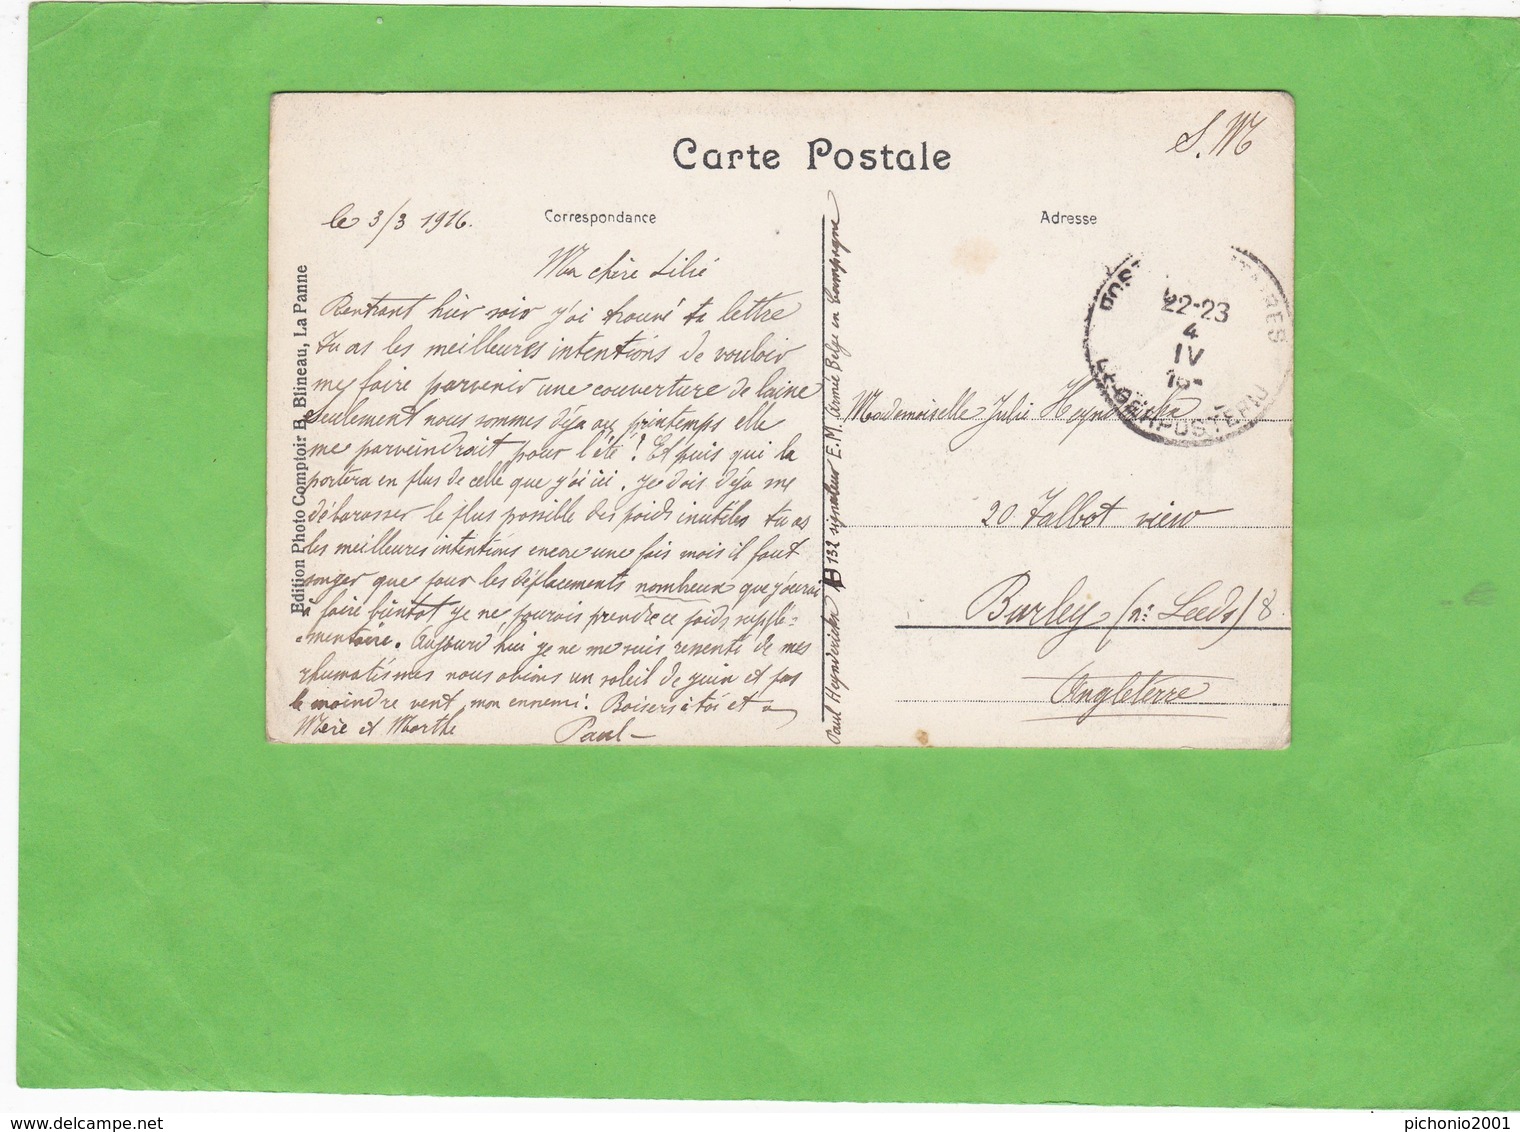 Carte Postale
S. M
Correspondance
Adresse
le 3/3 1916.
Ma chère Lilié
Rentrant hier soir j'ai trouvé ta lettre
tu as les meilleures intentions de vouloir
me faire parvenir une couverture de laine
Seulement nous sommes déja au printemps elle
me parviendrait pour l'été! Et puis qui la
portera en plus de celle que j'ai ici. je dois déja me
débarasser le plus possible des poids inutiles tu as
les meilleures intentions encore une fois mais il faut
songer que pour les déplacements nombreux que j'aurai
à faire bientôt je ne pourais prendre ce poids supplé=
=mentaire. Aujourd hui je ne me suis resenti de mes
rhumatismes nous avions un soleil de juin et pas
le moindre vent, mon ennemi. Baisers à toi et à
Mère et Marthe
Paul-
Edition Photo Comptoir B. Blineau, La Panne
132 signaleur E.M. Armée Belge en Campagne
Paul
22-23
4
IV
16
LEGERPOSTERIJ
Mademoiselle Julie
20 Talbot view
Burley (nr Leeds) 8
Angleterre
pichonio2001